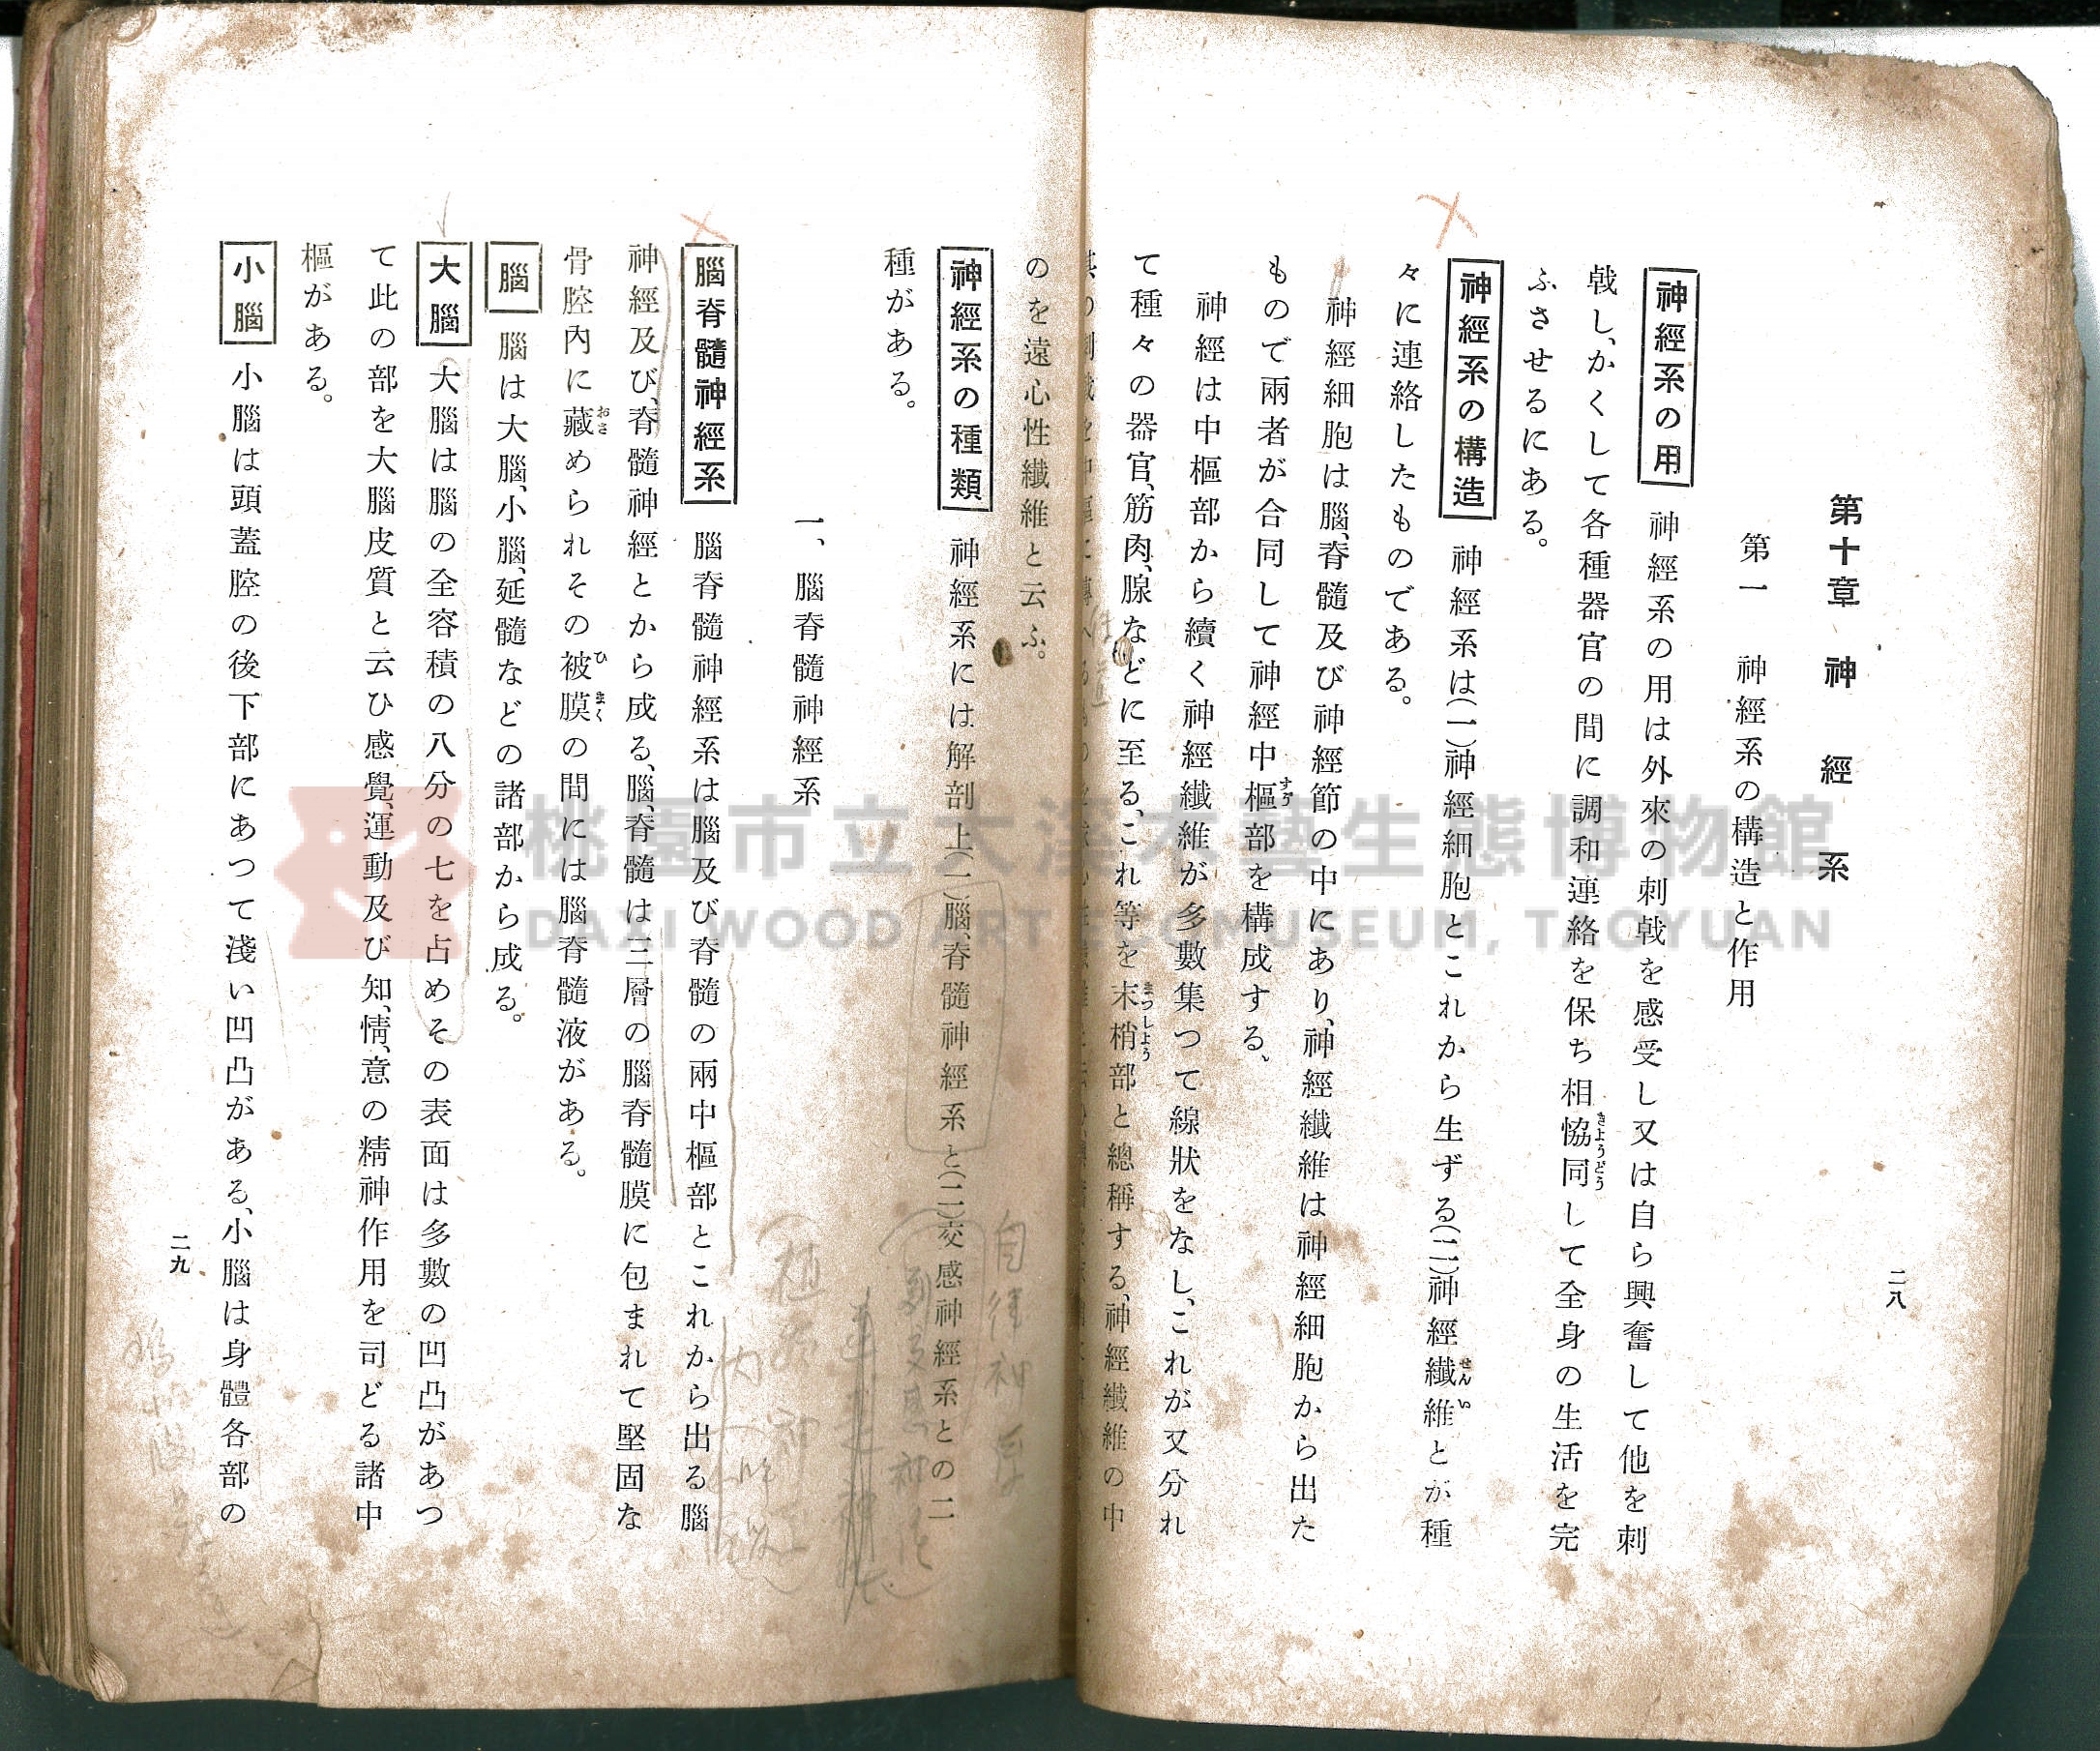 二八
第十章 神經系
第一 神經系の構造と作用
神經系の用 神經系の用は外來の刺戟を感受し又は自ら興奮して他を刺
戟し、かくして各種器官の間に調和連絡を保ち相恊同して全身の生活を完
ふさせるにある。
神經系の構造 神經系は(一)神經細胞とこれから生ずる(二)神經纎維とが種
々に連絡したものである。
神經細胞は腦、脊髓及び神經節の中にあり、神經纎維は神經細胞から出た
もので兩者が合同して神經中樞部を構成する、
神經は中樞部から續く神經纎維が多數集つて線狀をなし、これが又分れ
て種々の器官、筋肉、腺などに至る、これ等を末梢部と總稱する、神經纎維の中
のを遠心性纎維と云ふ。
神經系の種類 神經系には解剖上(一)腦、脊髓神經系と(二)交感神經系との二
種がある。
一、腦脊髓神經系
腦脊髓神經系 腦脊髓神經系は腦及び脊髓の兩中樞部とこれから出る腦
神經及び、脊髓神經とから成る、腦、脊髓は三層の腦脊髓膜に包まれて堅固な
骨腔內に藏められその被膜の間には腦脊髓液がある。
腦 腦は大腦、小腦、延髓などの諸部から成る。
大腦 大腦は腦の全容積の八分の七を占めその表面は多數の凹凸があつ
て此の部を大腦皮質と云ひ感覺、運動及び知、情、意の精神作用を司どる諸中
樞がある。
小腦 小腦は頭蓋腔の後下部にあつて淺い凹凸がある、小腦は身體各部の
二九
自律神系
桃園市立大溪木藝生態博物館
DAXI WOOD ART ECOMUSEUM, TAOYUAN